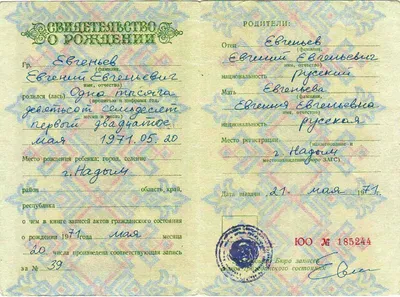 СВИДЕТЕЛЬСТВО
О РОЖДЕНИИ
Гр. Евгеньев
Евгений Евгеньевич
имя, отчество
родился (лась) Одна тысяча
девятьсот семьдесят
первый двадцатое
мая 1971.05.20
Место рождения ребенка: город, селение
г. Надым
район область, край,
республика
о чем в книге записей актов гражданского состояния
о рождении 1971 мая
20 числа произведена соответствующая запись
за № 39
РОДИТЕЛИ:
Отец Евгеньев
Евгений Евгеньевич
имя, отчество
национальность русский
Мать Евгеньева
Евгения Евгеньевна
имя, отчество
национальность русская
Место регистрации
г. Надым
Дата выдачи: 21 мая 1971
ЮО № 185244
Бюро записей
гражданского состояния